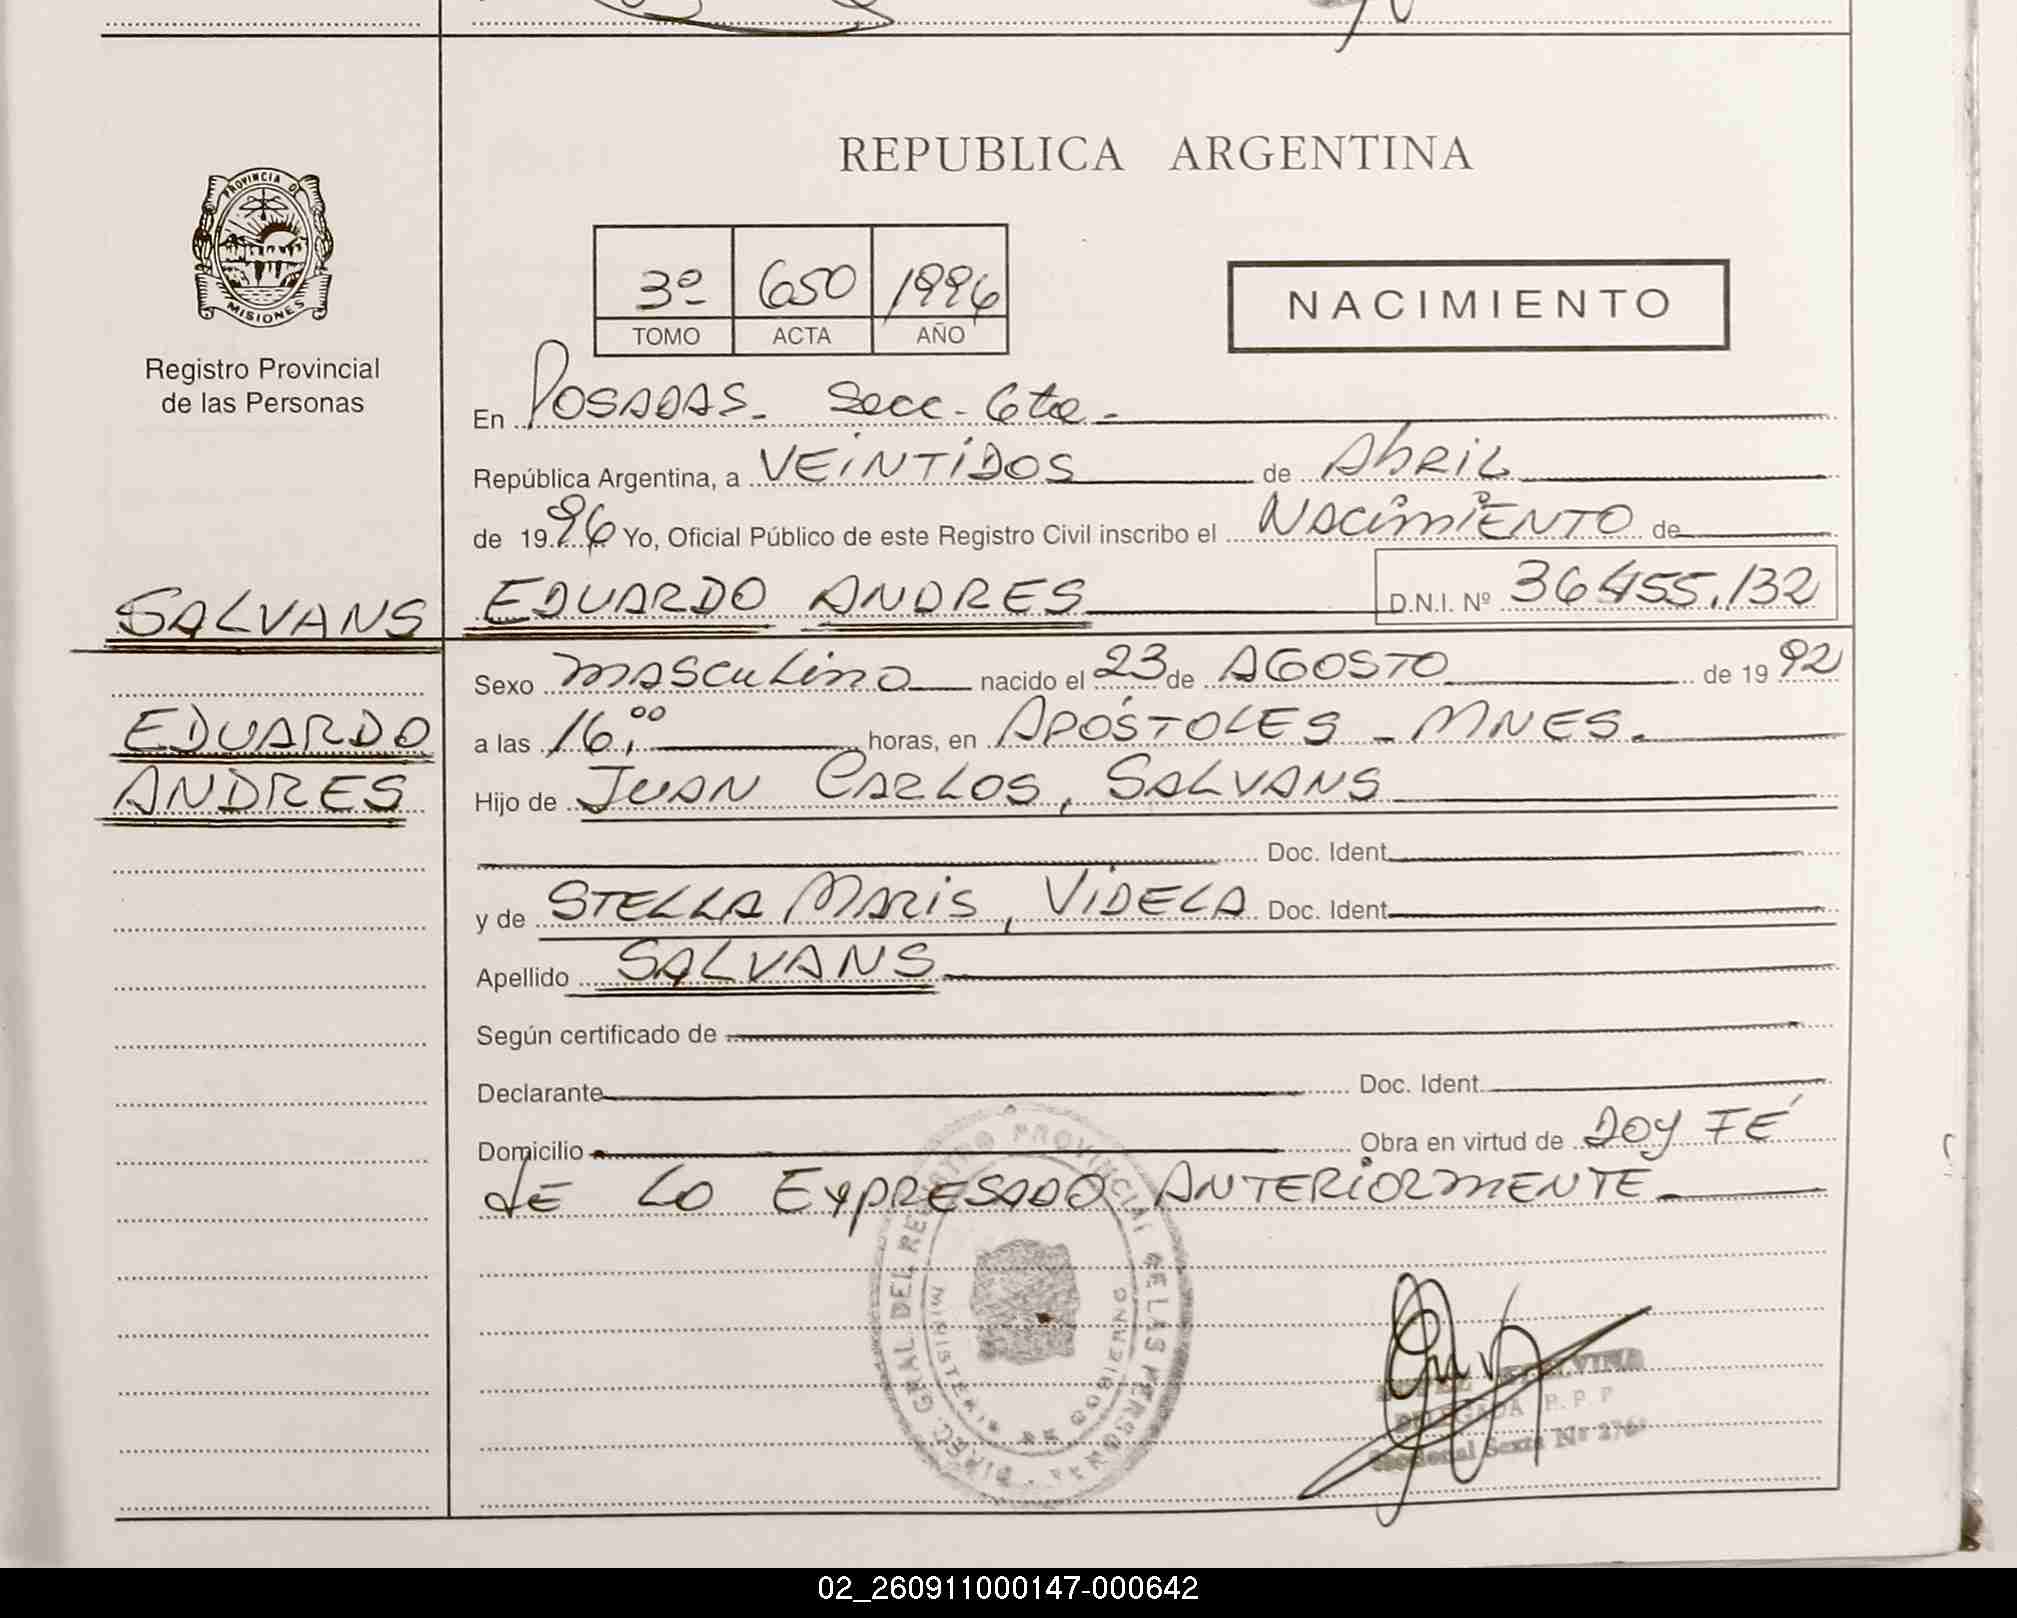 REPUBLICA ARGENTINA
PROVINCIA DE
MISIONES
Registro Provincial
de las Personas
3º 650 1996
TOMO ACTA AÑO
NACIMIENTO
En POSADAS. Secc. 6ta.
República Argentina, a VEINTIDOS de Abril
de 1996 Yo, Oficial Público de este Registro Civil inscribo el NACIMIENTO de
SALVANS EDUARDO ANDRES D.N.I. Nº 36.455.132
Sexo masculino nacido el 23 de AGOSTO de 1992
EDUARDO
a las 16,00 horas, en APÓSTOLES - MNES.
ANDRES
Hijo de JUAN CARLOS, SALVANS
Doc. Ident.
y de STELLA MARIS, VIDELA Doc. Ident.
Apellido SALVANS
Según certificado de
Declarante Doc. Ident.
Domicilio Obra en virtud de DOY FÉ
dE LO ExpRESADO ANTERIORMENTE.
DIREC. GRAL DEL REGISTRO PROVINCIAL DE LAS PERSONAS
MINISTERIO GOBIERNO
DELEGADA R. P. P
Seccional Sexta Nº
02_260911000147-000642